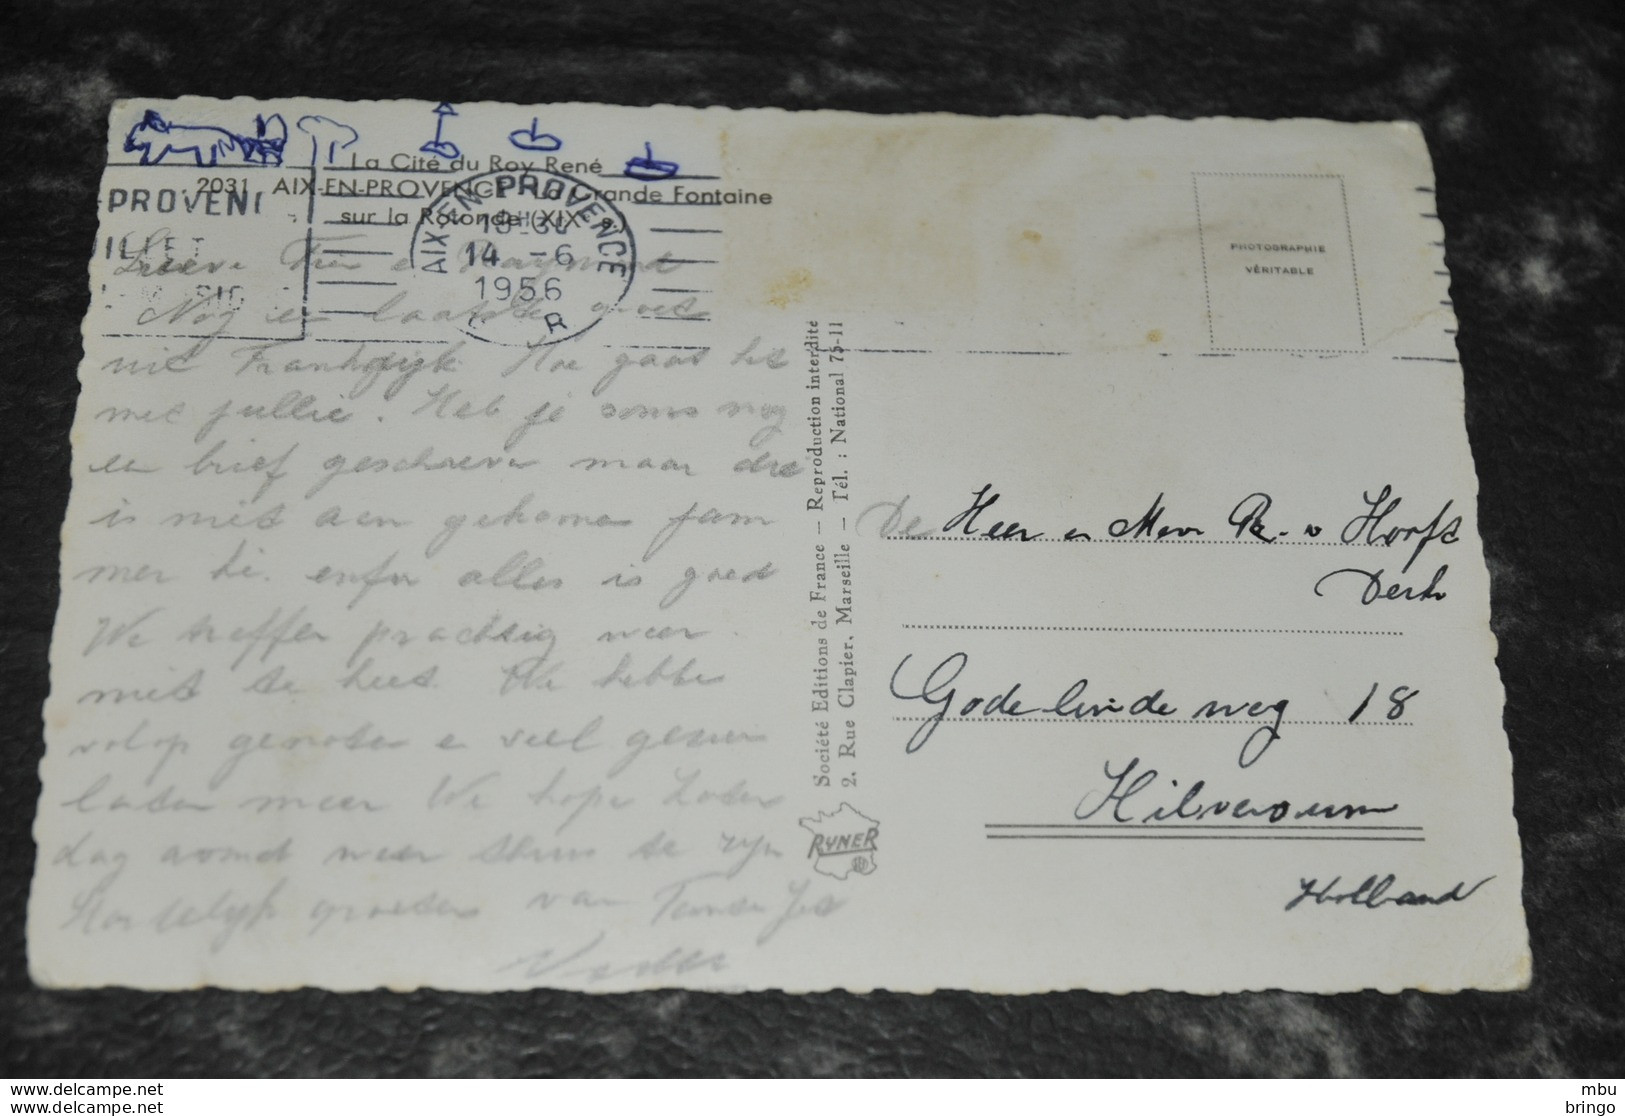 La Cité du Roy René
2031 AIX-EN-PROVENCE - La Grande Fontaine
sur la Rotonde (XIXe s.)
PROVEN
AIX-EN-PROVENCE
14 -6
1956
Nog en laatste groet
uit Frankrijk Hoe gaat het
met jullie. Heb je soms nog
een brief geschreven maar die
is niet aan gekomen
enfin alles is goed
We treffen prachtig weer
niet te heet. We hebben
volop genoten e veel gezien
later meer We hopen Zater
dag avond weer thuis te zijn
Hartelijk groeten van Tante Jet
PHOTOGRAPHIE
VÉRITABLE
Société Editions de France — Reproduction interdite
2. Rue Clapier, Marseille — Tél. : National 75-11
RYNER
De Heer en Mevr
Godelindeweg 18
Hilversum
Holland
mbu
www.delcampe.net
bringo
www.delcampe.net